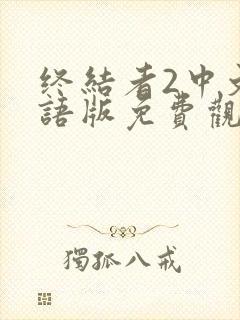 终結者2中文
語版免費觀
獨孤八戒